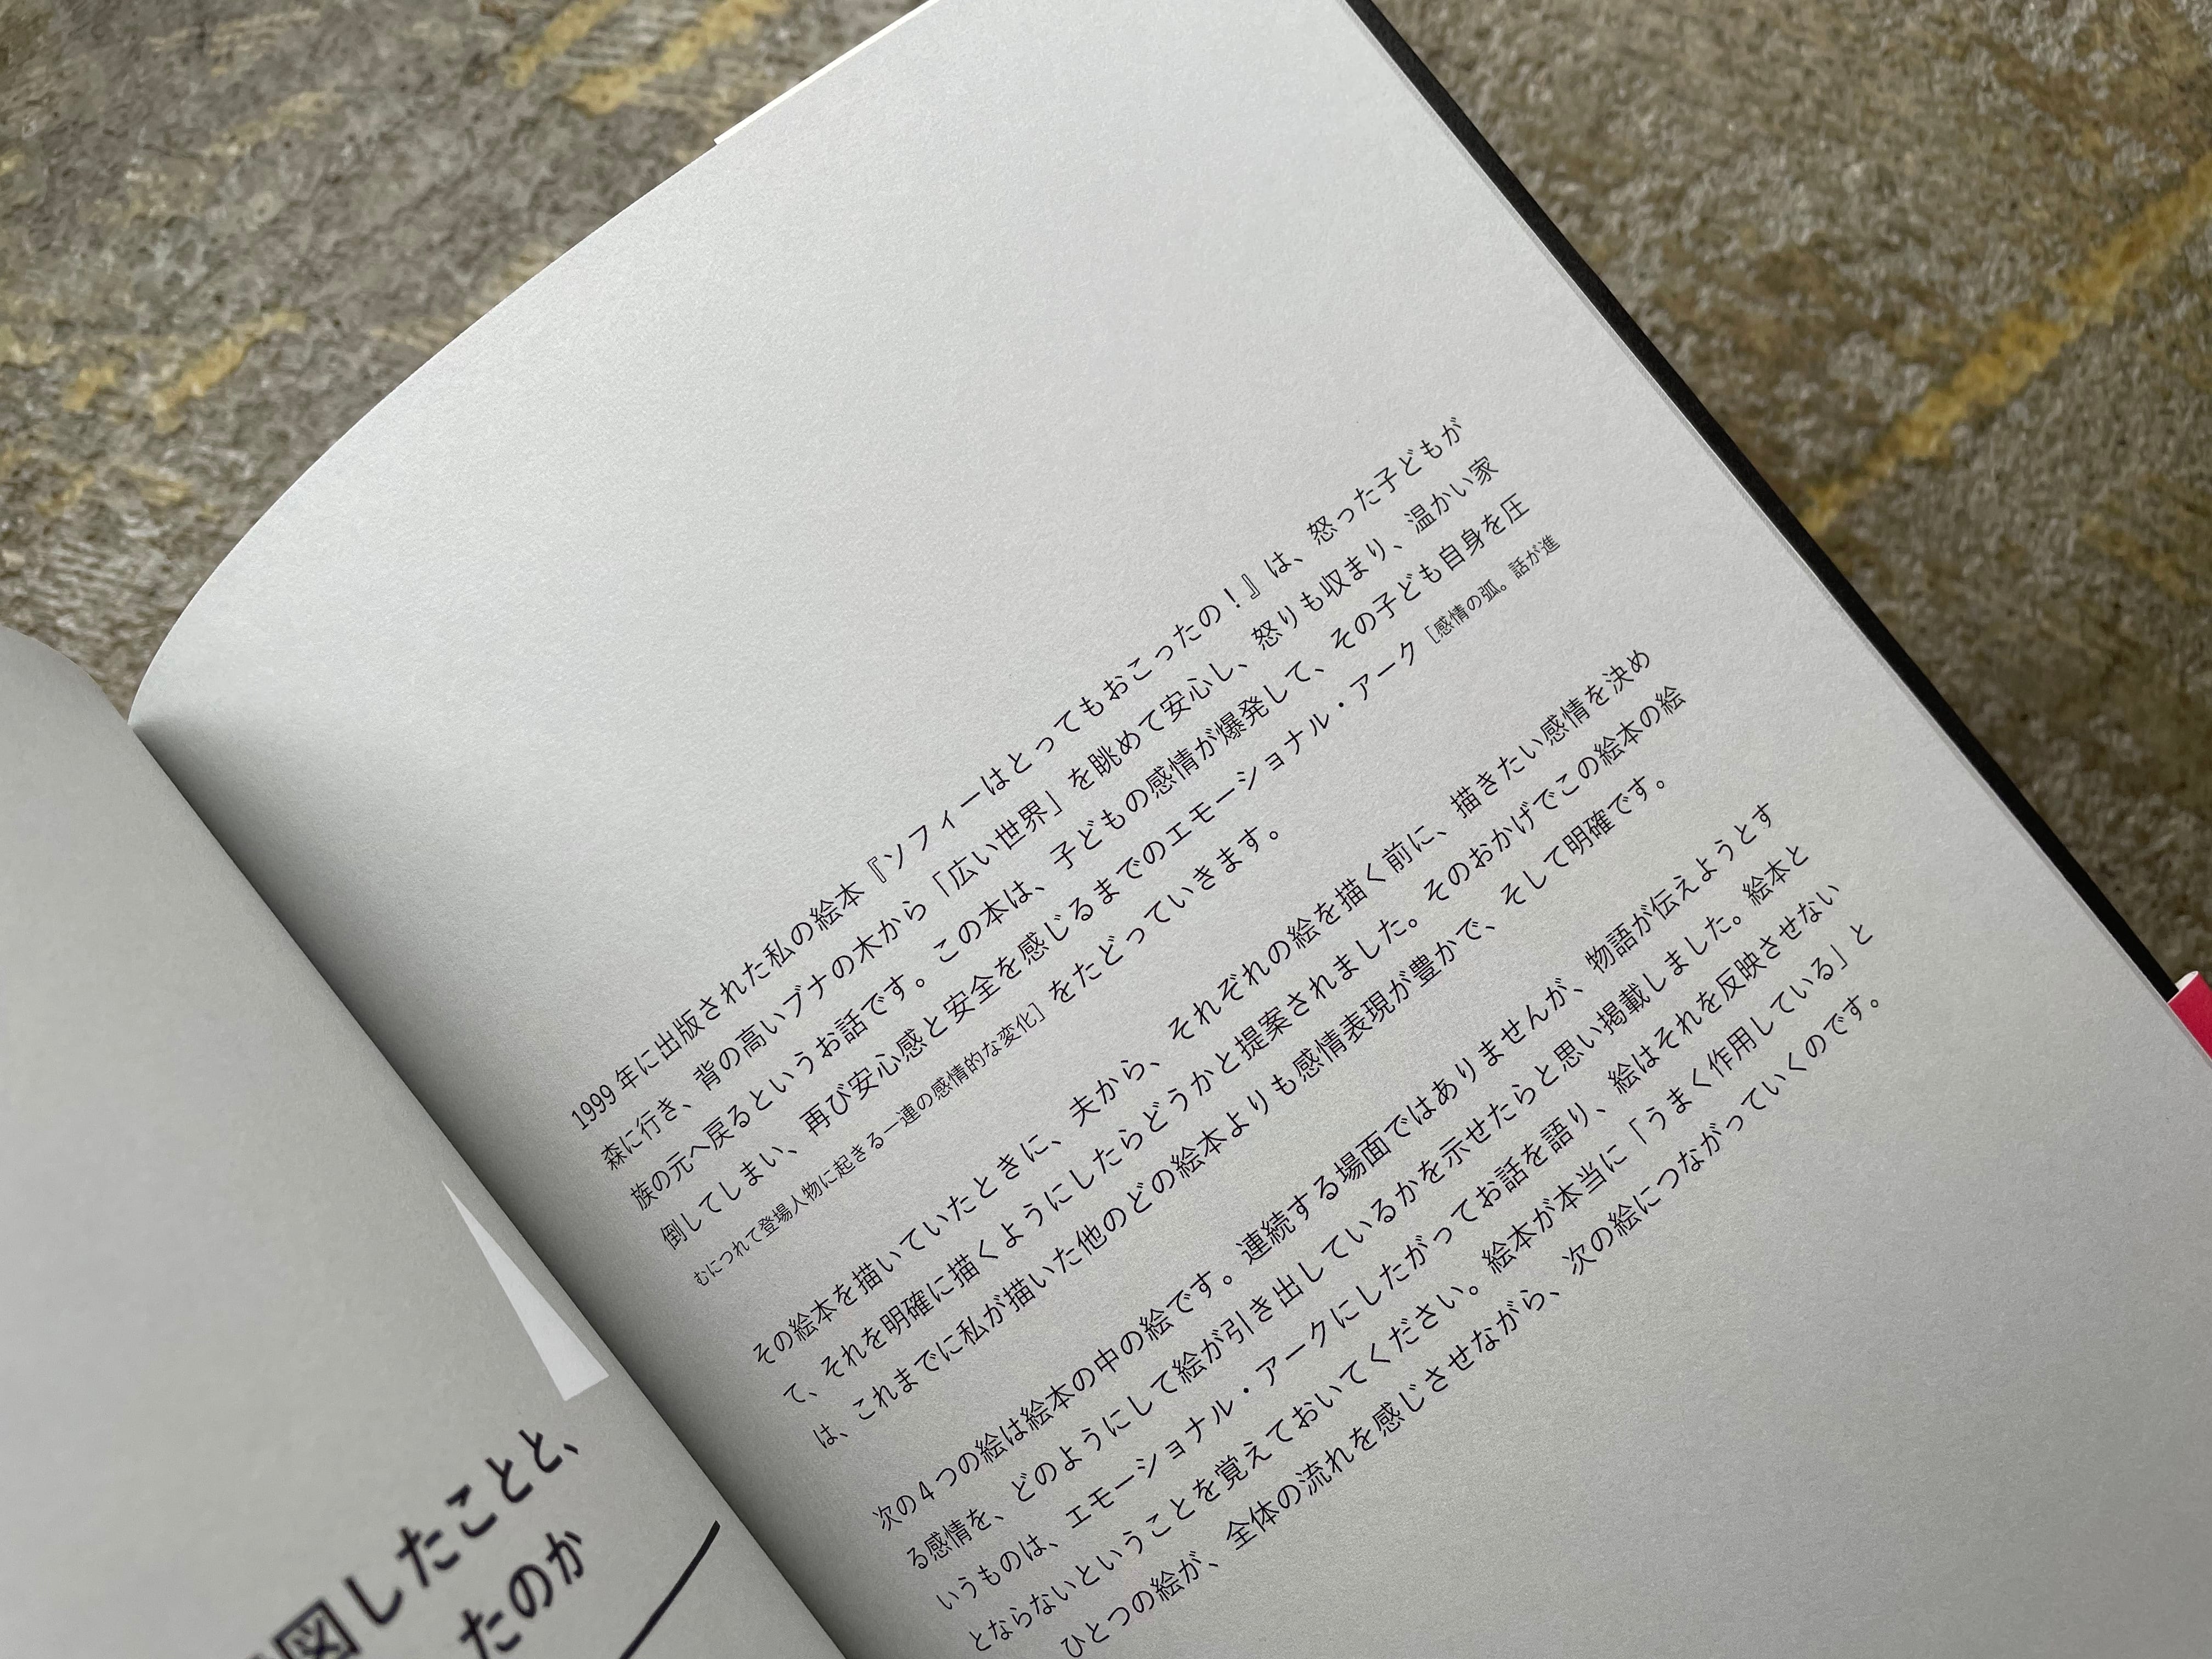 図したことと、
たのか
1999 年に出版された私の絵本『ソフィーはとってもおこったの！』は、怒った子どもが
森に行き、背の高いブナの木から「広い世界」を眺めて安心し、怒りも収まり、温かい家
族の元へ戻るというお話です。この本は、子どもの感情が爆発して、その子ども自身を圧
倒してしまい、再び安心感と安全を感じるまでのエモーショナル・アーク［感情の弧。話が進
むにつれて登場人物に起きる一連の感情的な変化］をたどっていきます。
その絵本を描いていたときに、夫から、それぞれの絵を描く前に、描きたい感情を決め
て、それを明確に描くようにしたらどうかと提案されました。そのおかげでこの絵本の絵
は、これまでに私が描いた他のどの絵本よりも感情表現が豊かで、そして明確です。
次の 4 つの絵は絵本の中の絵です。連続する場面ではありませんが、物語が伝えようとす
る感情を、どのようにして絵が引き出しているかを示せたらと思い掲載しました。絵本と
いうものは、エモーショナル・アークにしたがってお話を語り、絵はそれを反映させない
とならないということを覚えておいてください。絵本が本当に「うまく作用している」と
ひとつの絵が、全体の流れを感じさせながら、次の絵につながっていくのです。